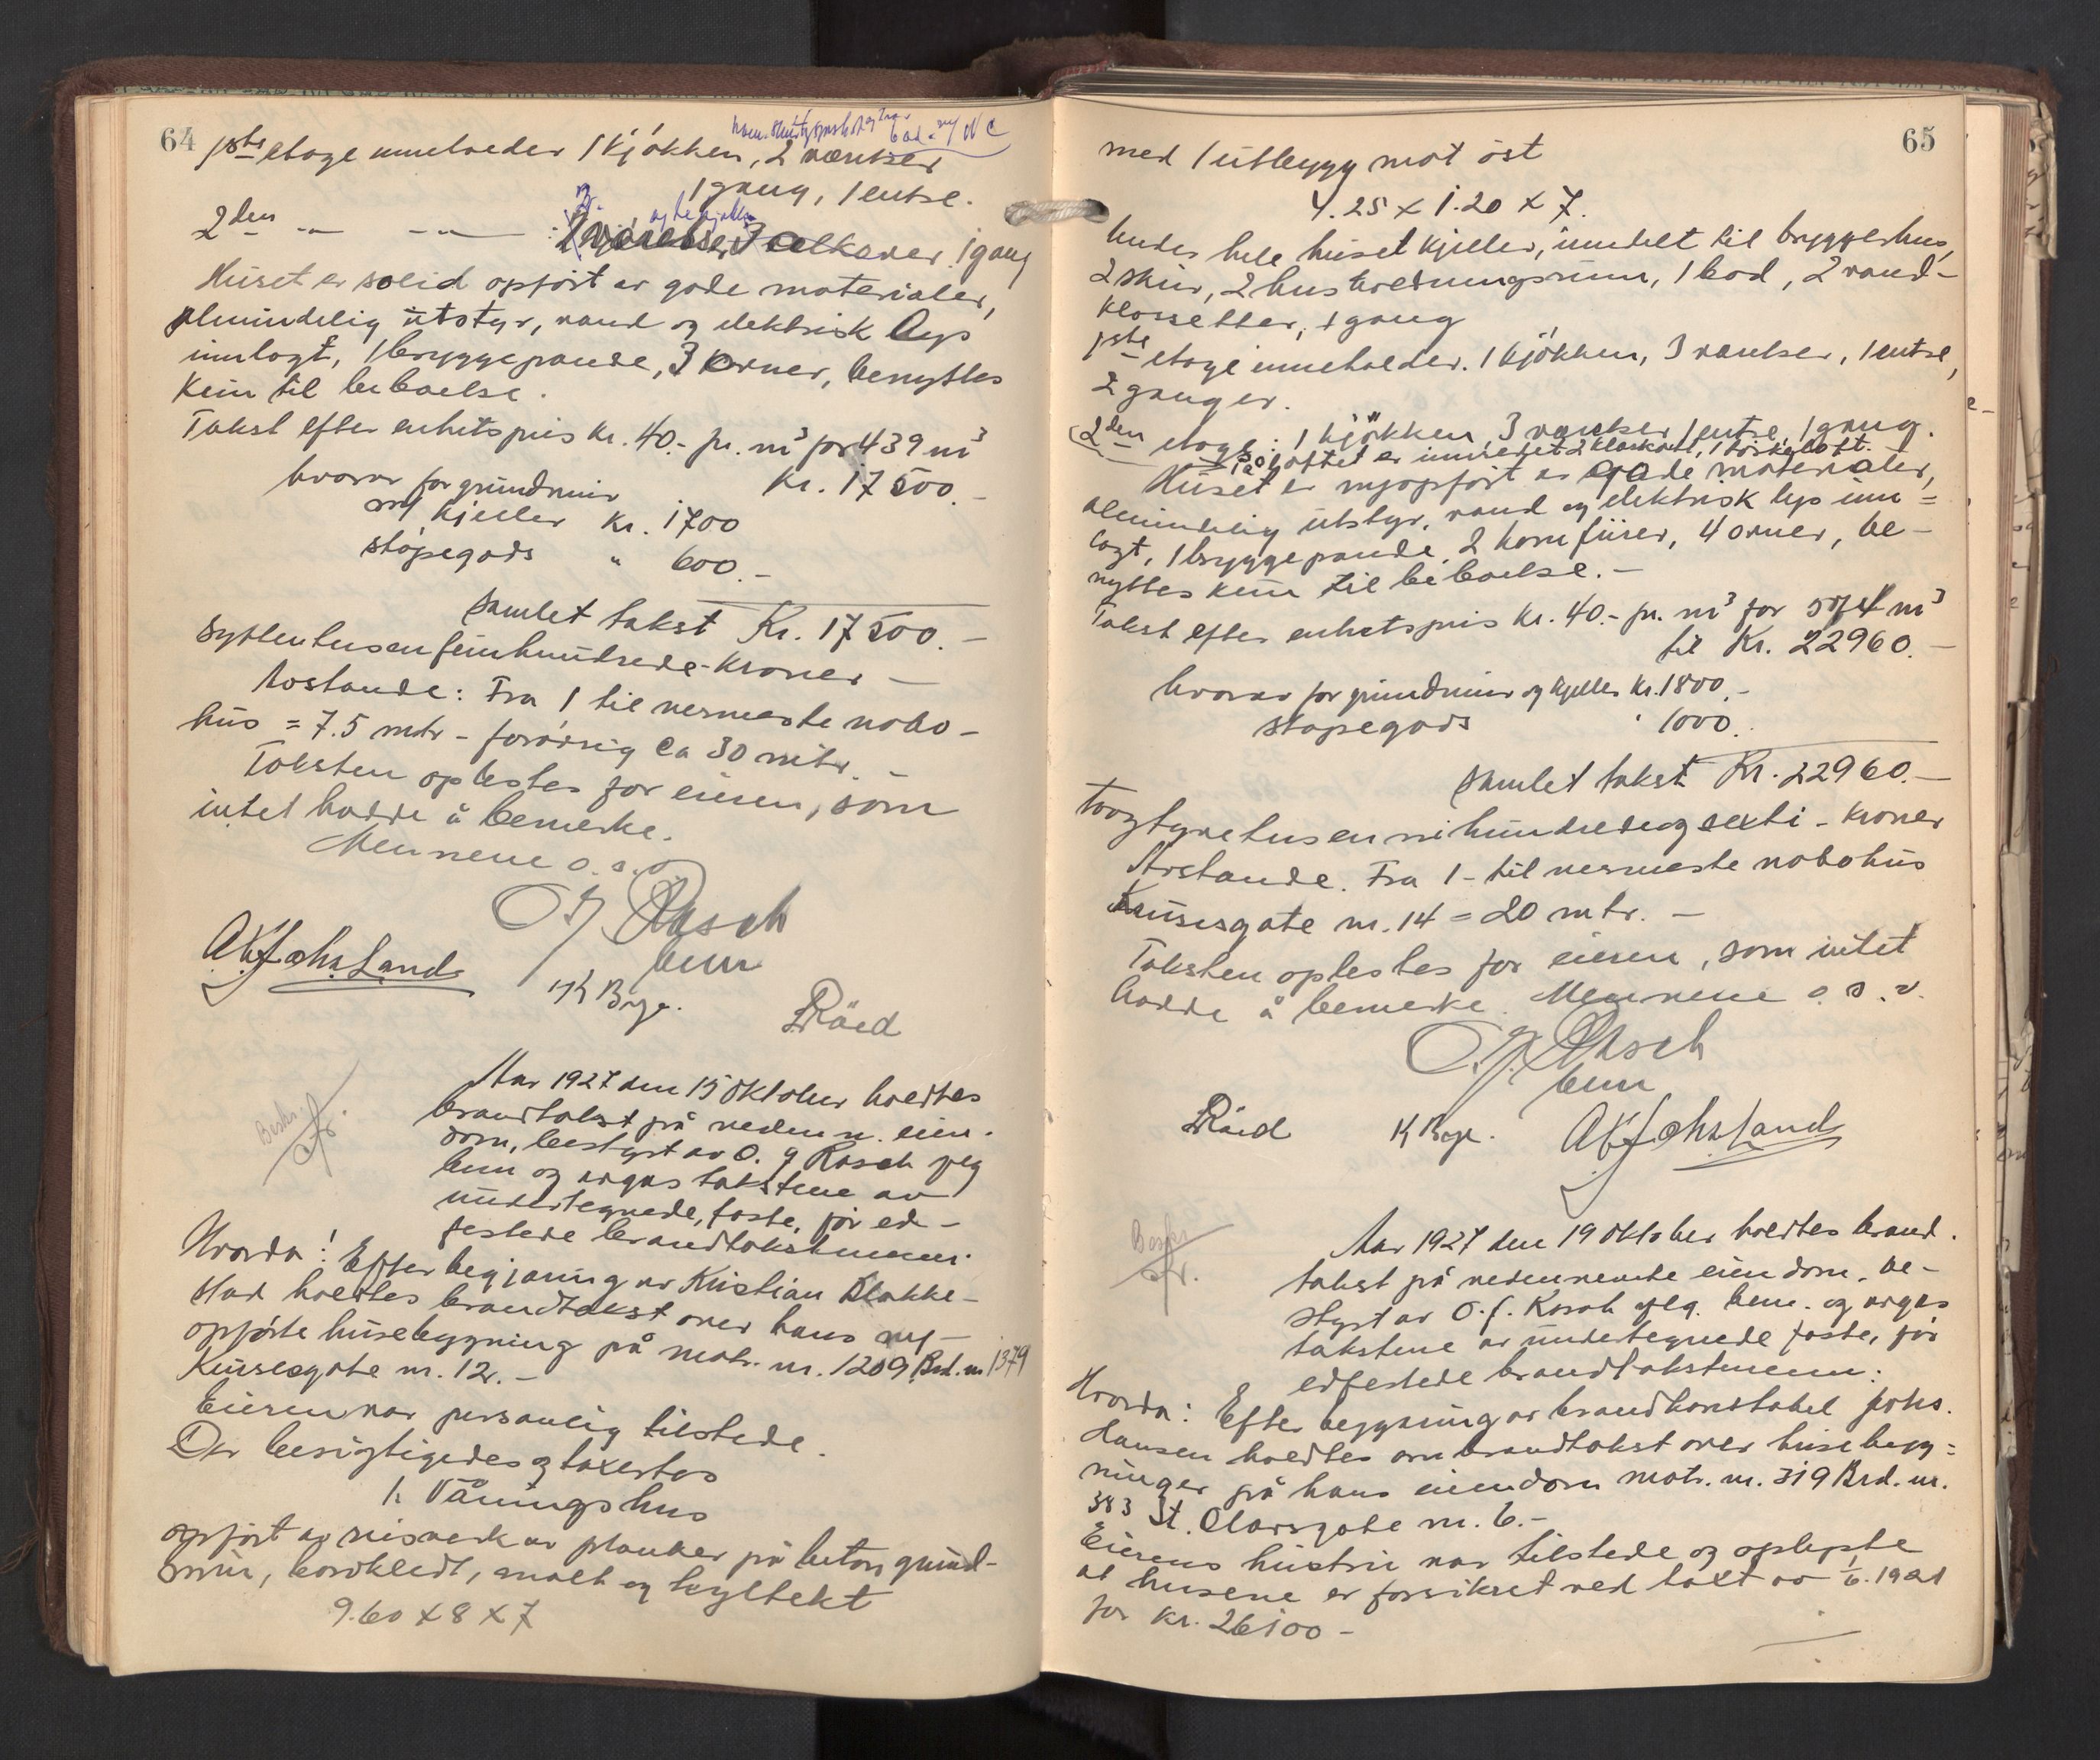 64
1ste etage inneholder 1 kjøkken, 2 værelser
bad. m/ WC
1 gang, 1 entre.
2den -"- -"- : 3 alkover 1 gang
Huset er solid opført av gode materialer,
almindelig utstyr, vand og elektrisk lys
innlagt, 1 bryggepande, 3 ovner, benyttes
kun til beboelse.
Takst efter enhetspris kr. 40.- pr. m³ for 439 m³
Kr. 17500.-
hvorav for grundmur
og kjeller kr. 1700
støpegods " 600.-
Samlet takst Kr. 17500.-
Syttentusenfemhundrede-kroner -
Avstande: Fra 1 til nermeste nabo-
hus = 7.5 mtr - forøvrig ca 30 mtr. -
Taksten oplestes for eieren, som
intet hadde å bemerke.
Mennene o.s.v.
O J Rasch
bem
K Bage.
Røed
Aar 1927 den 15 Oktober holdtes
brandtakst på nedenn. eien-
dom, bestyrt av O. J Rasch fylg
bem og avgas takstene av
undertegnede, faste, før ed-
festede brandtakstmenn.
Hvorda: Efter begjæring av Kristian Blakke-
stad holdtes brandtakst over hans ny-
opførte husebygning på matr. nr. 1209 Brd. nr 1379
Kruses gate nr. 12. -
Eieren var personlig tilstede.
Der besigtigedes og taxertes
1. Våningshus
opført av reisverk av planker på betong grund-
mur, bordkledt, malt og tegltekt
9.60 x 8 x 7
65
med 1 utbygg mot øst
4.25 x 1.20 x 7.
Under hele huset kjeller, inndelt til bryggerhus,
2 skur, 2 husholdningsrum, 1 bod, 2 vand-
klossetter, 1 gang
1ste etage inneholder. 1 kjøkken, 3 værelser, 1 entre,
2 ganger.
2den etage: 1 kjøkken, 3 værelser 1 entre, 1 gang.
På loftet er innredet 2 kleskott, 1 tørkeloft.
Huset er nyopført av gode materialer,
almindelig utstyr, vand og elektrisk lys inn=
lagt, 1 bryggepande, 2 komfurer, 4 ovner, be-
nyttes kun til beboelse. -
Takst efter enhetspris kr. 40.- pr. m³ for 574 m³
til Kr. 22960.-
hvorav for grundmur og kjeller kr. 1800.-
støpegods " 1000.
Samlet takst Kr. 22960.-
Toogtyvetusennihundredeogseksti - kroner
Avstande. Fra 1 - til nermeste nabohus
Kruses gate nr. 14 = 20 mtr. -
Taksten oplestes for eieren, som intet
hadde å bemerke. Mennene o.s.v.
O. J. Rasch
bem
Røed K Bage.
Aar 1927 den 19 Oktober holdtes brand-
takst på nedennevnte eiendom, be-
styrt av O. J. Rasch fylg. bem. og avgas
takstene av undertegnede faste, før
edfestede brandtakstmenn:
Hvorda: Efter begjæring av brandkonstabel Johs.
Hansen holdtes ombrandtakst over husebyg=
ninger på hans eiendom matr. nr. 319 Brd. nr.
383 St. Olavsgate nr. 6. -
Eierens hustru var tilstede og oplyste
at husene er forsikret ved takst av 1/6. 1921
for kr. 26100 -